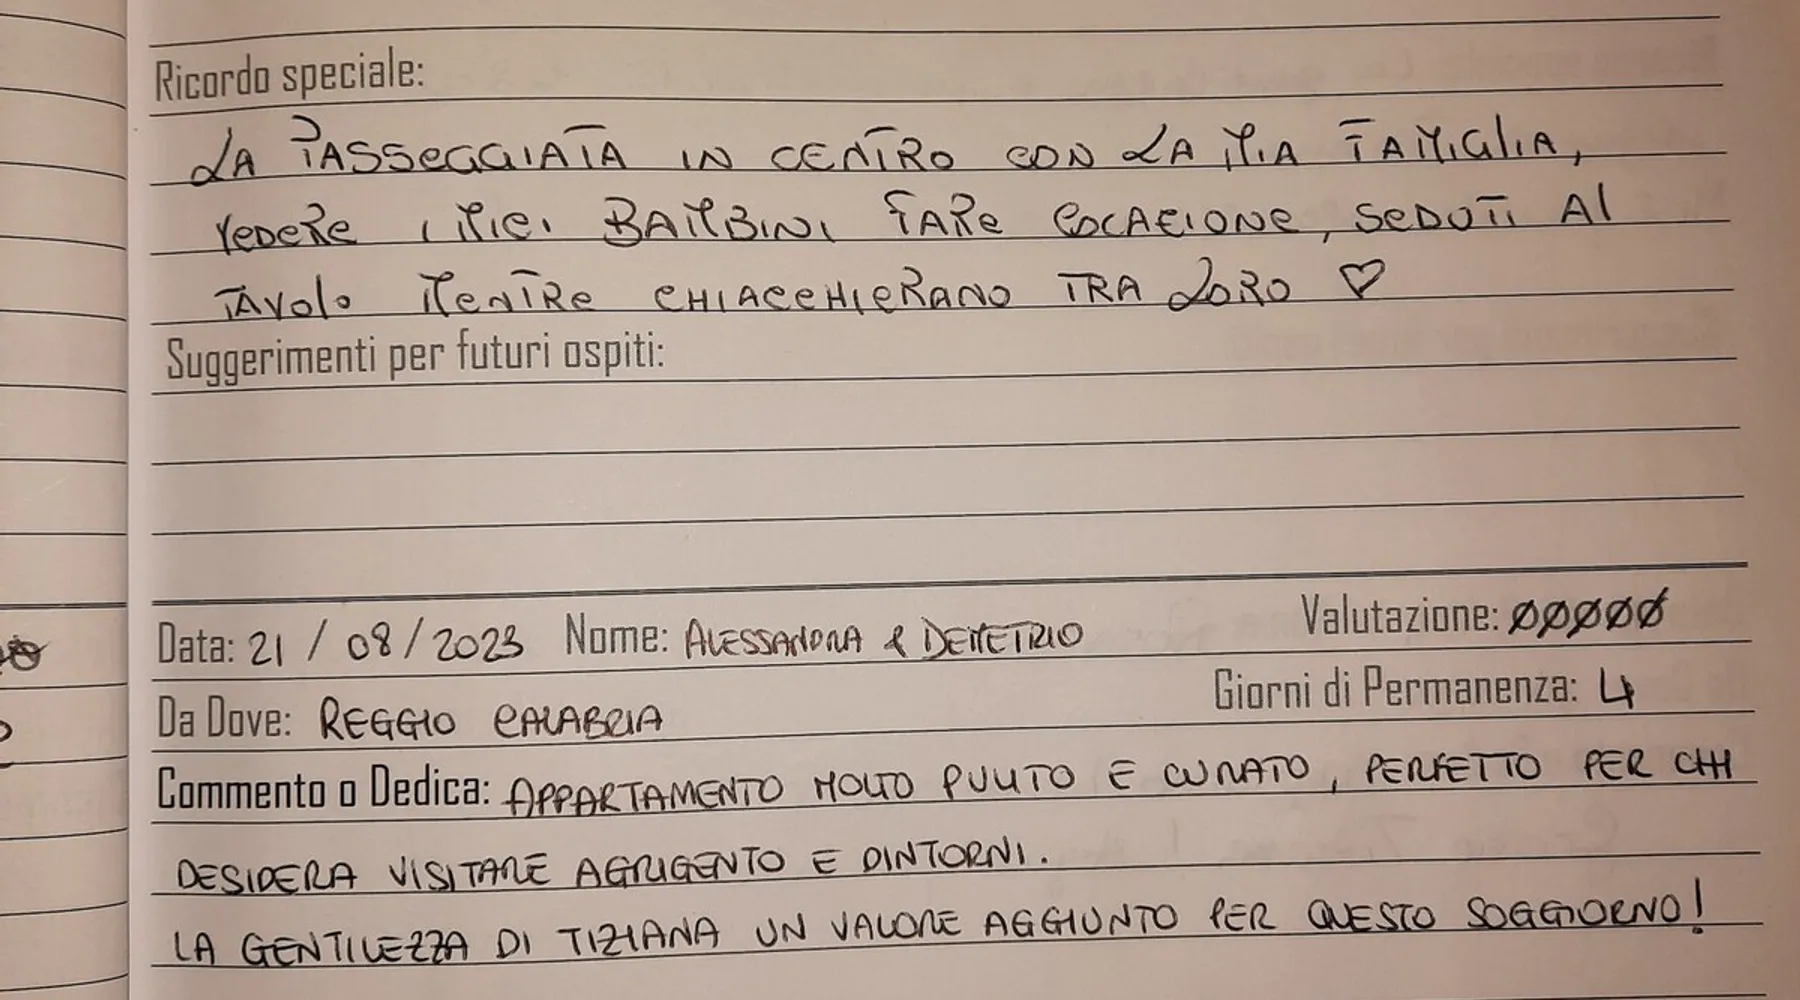 Ricordo speciale:
LA PASSEGGIATA IN CENTRO CON LA MIA FAMIGLIA,
VEDERE I MIEI BAMBINI FARE COLAZIONE, SEDUTI AL
TAVOLO MENTRE CHIACCHIERANO TRA LORO ♡
Suggerimenti per futuri ospiti:
Data: 21 / 08 / 2023 Nome: ALESSANDRA & DEMETRIO Valutazione: ØØØØØ
Da Dove: REGGIO CALABRIA Giorni di Permanenza: 4
Commento o Dedica: APPARTAMENTO MOLTO PULITO E CURATO, PERFETTO PER CHI
DESIDERA VISITARE AGRIGENTO E DINTORNI.
LA GENTILEZZA DI TIZIANA UN VALORE AGGIUNTO PER QUESTO SOGGIORNO!